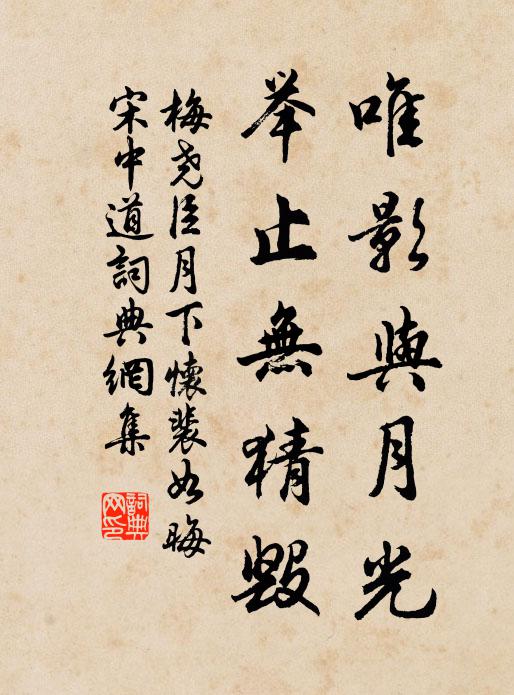 唯影與月光
举止無猜毀
梅尧臣月下懷裴如晦
宋中道詞典網集
詞典网印